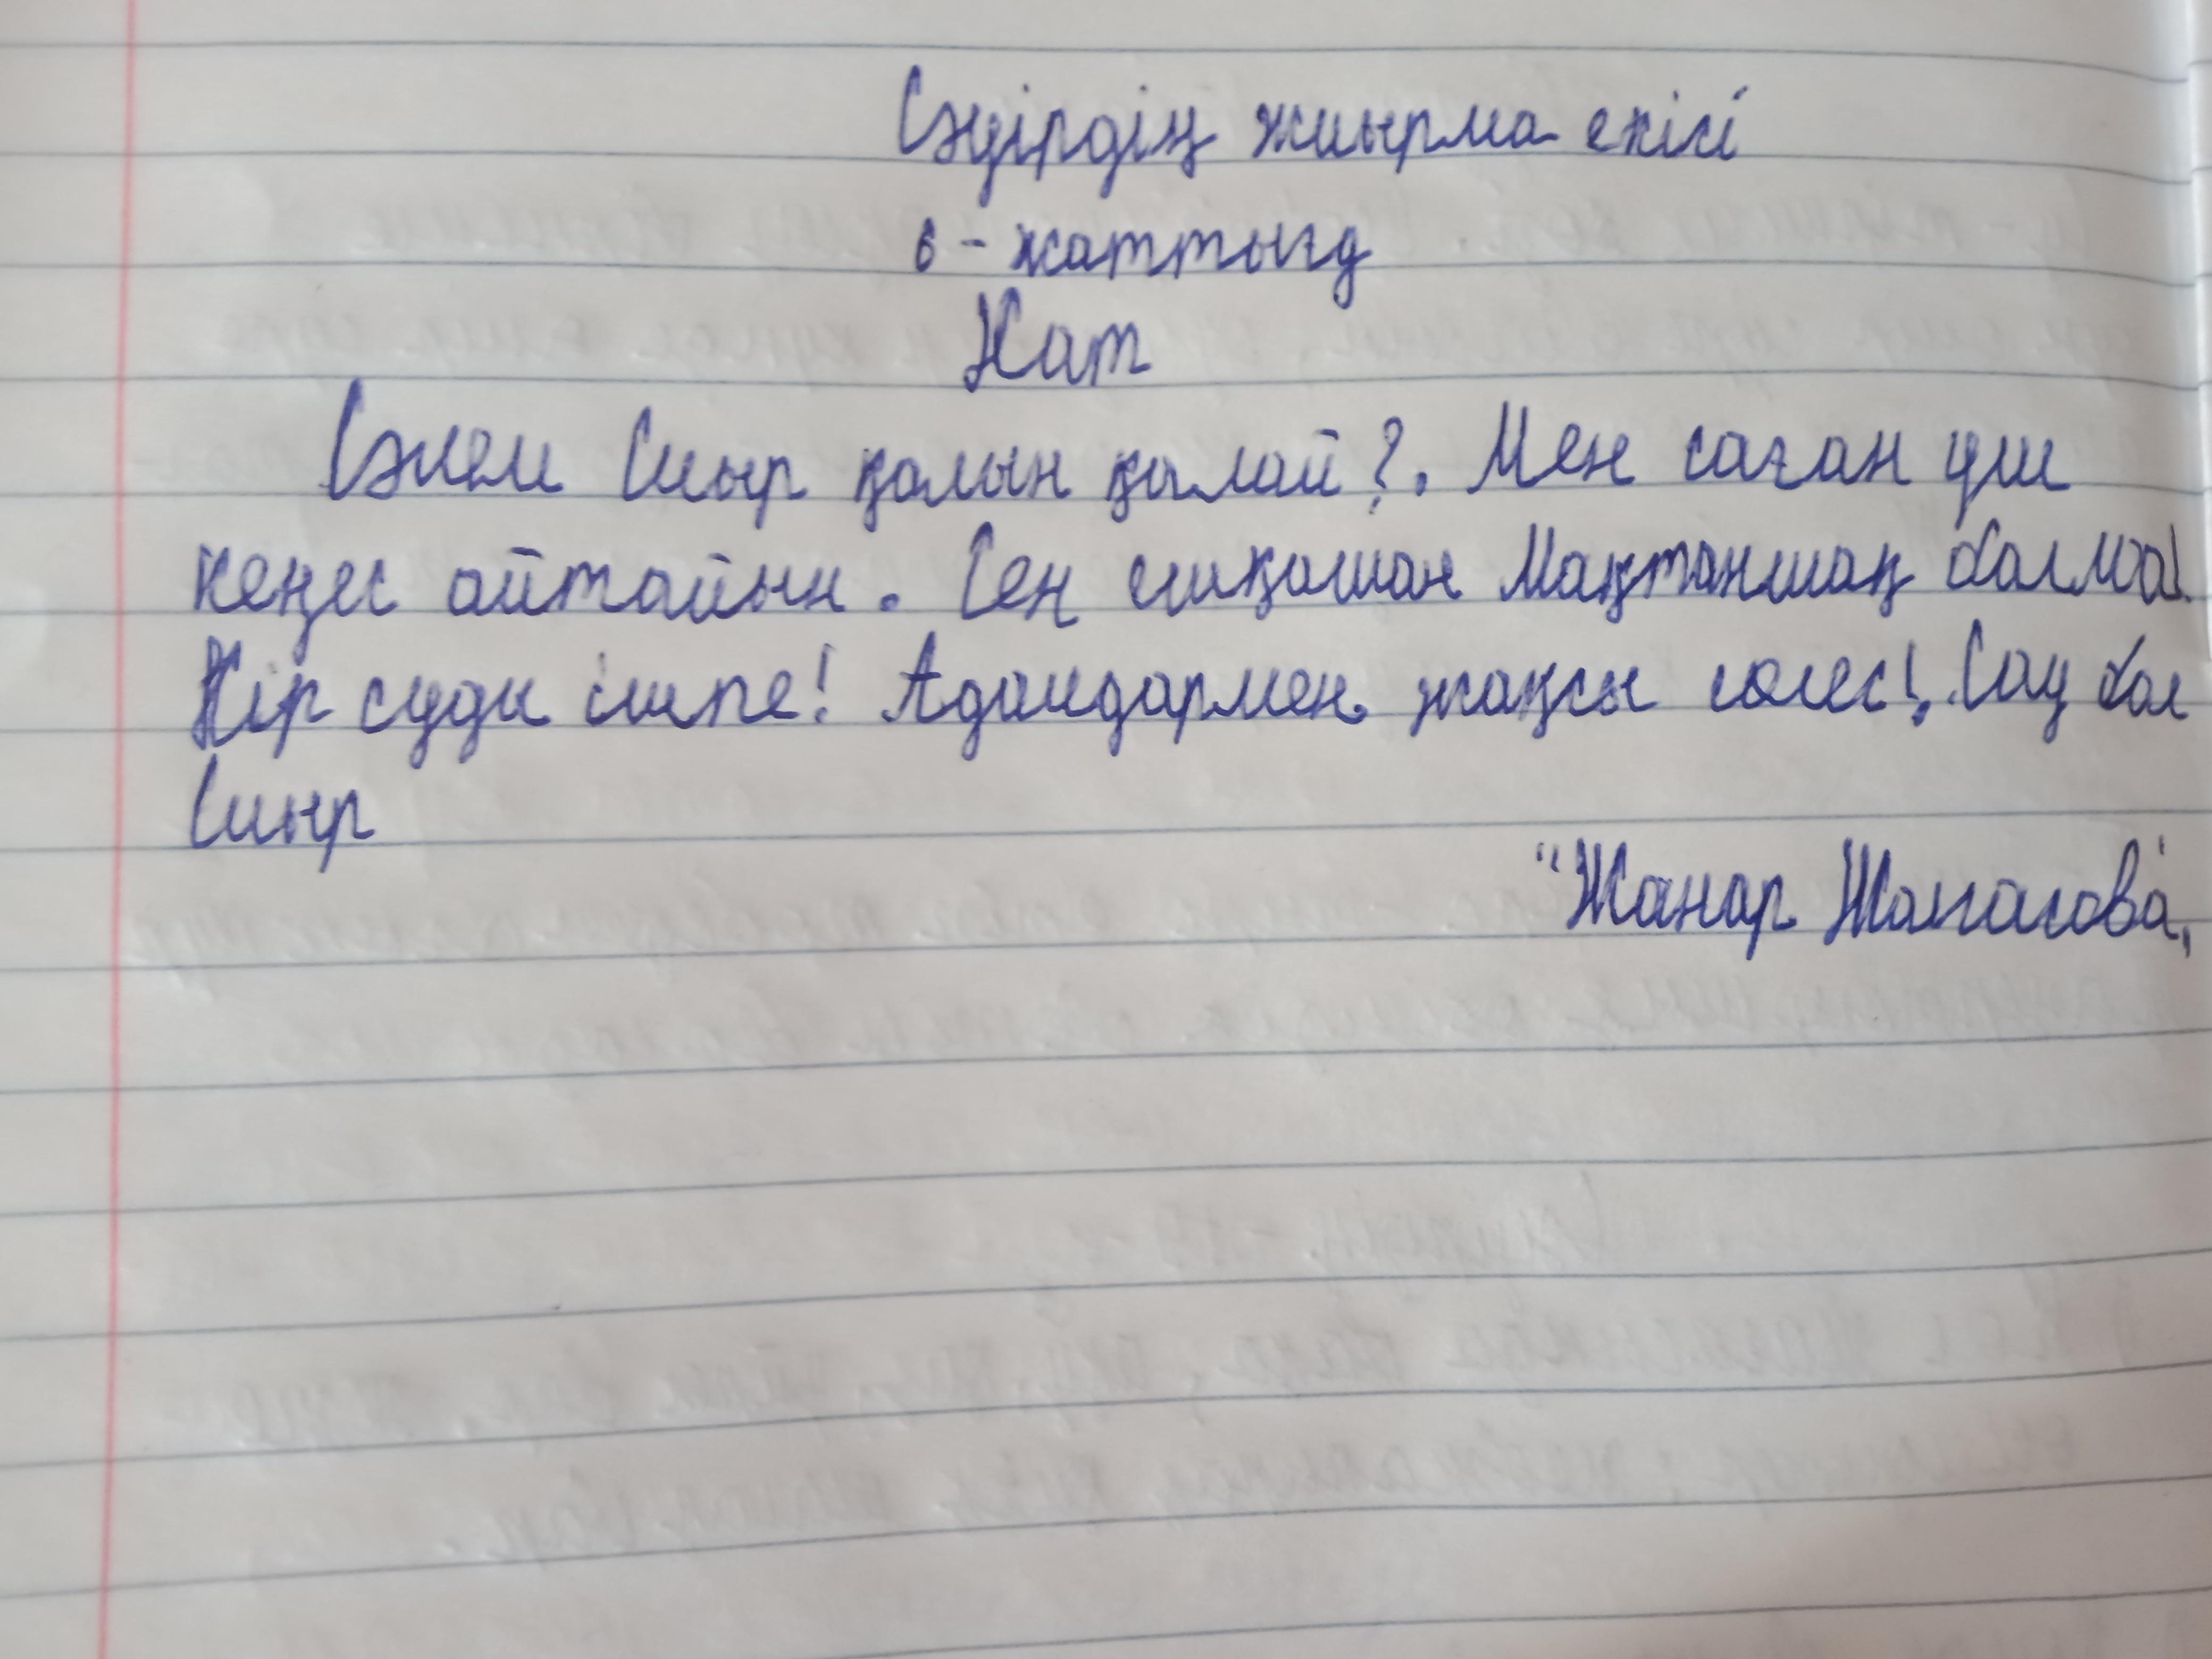 Сәуірдің жиырма екісі
6 - жаттығу
Хат
Сәлем Сиыр қалын қалай?. Мен саған үш
кеңес айтайын. Сен ешқашан Мақтаншақ болма!.
Кір суды ішпе! Адамдармен жақсы сөлес!. Сау бол
Сиыр
"Жанар Жалгасова"